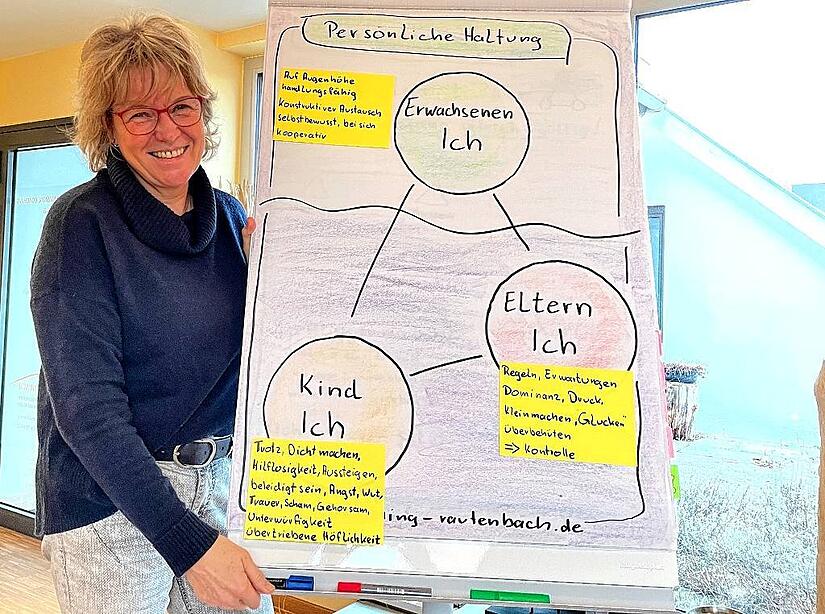 Persönliche Haltung
Auf Augenhöhe
handlungsfähig
Konstruktiver Austausch
selbstbewusst, bei sich
kooperativ
Erwachsenen
Ich
Eltern
Ich
Regeln, Erwartungen
Dominanz, Druck,
Kleinmachen, „Glucken"
überbehüten
=> Kontrolle
Kind
Ich
Trotz, Dichtmachen,
Hilflosigkeit, Aussteigen,
beleidigt sein, Angst, Wut,
Trauer, Scham, Gehorsam,
Unterwürfigkeit
übertriebene Höflichkeit
ing-rautenbach.de